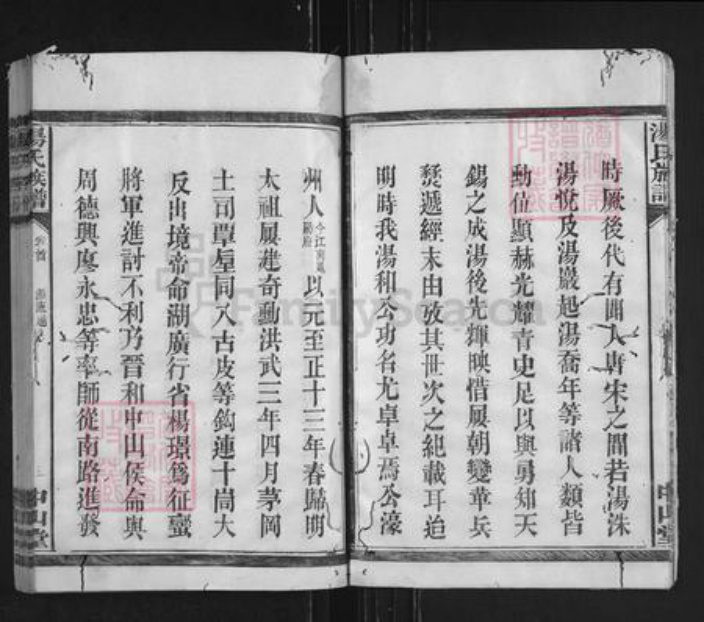 時厥後代有聞人唐宋之間若湯洙
湯悅及湯巖起湯喬年等諸人類皆
勳位顯赫光耀青史足以與勇知天
錫之成湯後先輝映惜屢朝變革兵
燹遞經末由攷其世次之紀載耳迨
明時我湯和公功名尤卓卓焉公濠
州人以元至正十三年春歸明
太祖屢建奇勳洪武三年四月茅岡
土司覃垕同八古皮等鈎連十峝大
反出境帝命湖廣行省楊璟爲征蠻
將軍進討不利乃晉和中山侯命與
周德興廖永忠等率師從南路進發
湯氏族譜
中山堂
湯氏族譜
卷首
中山堂
FamilySearch